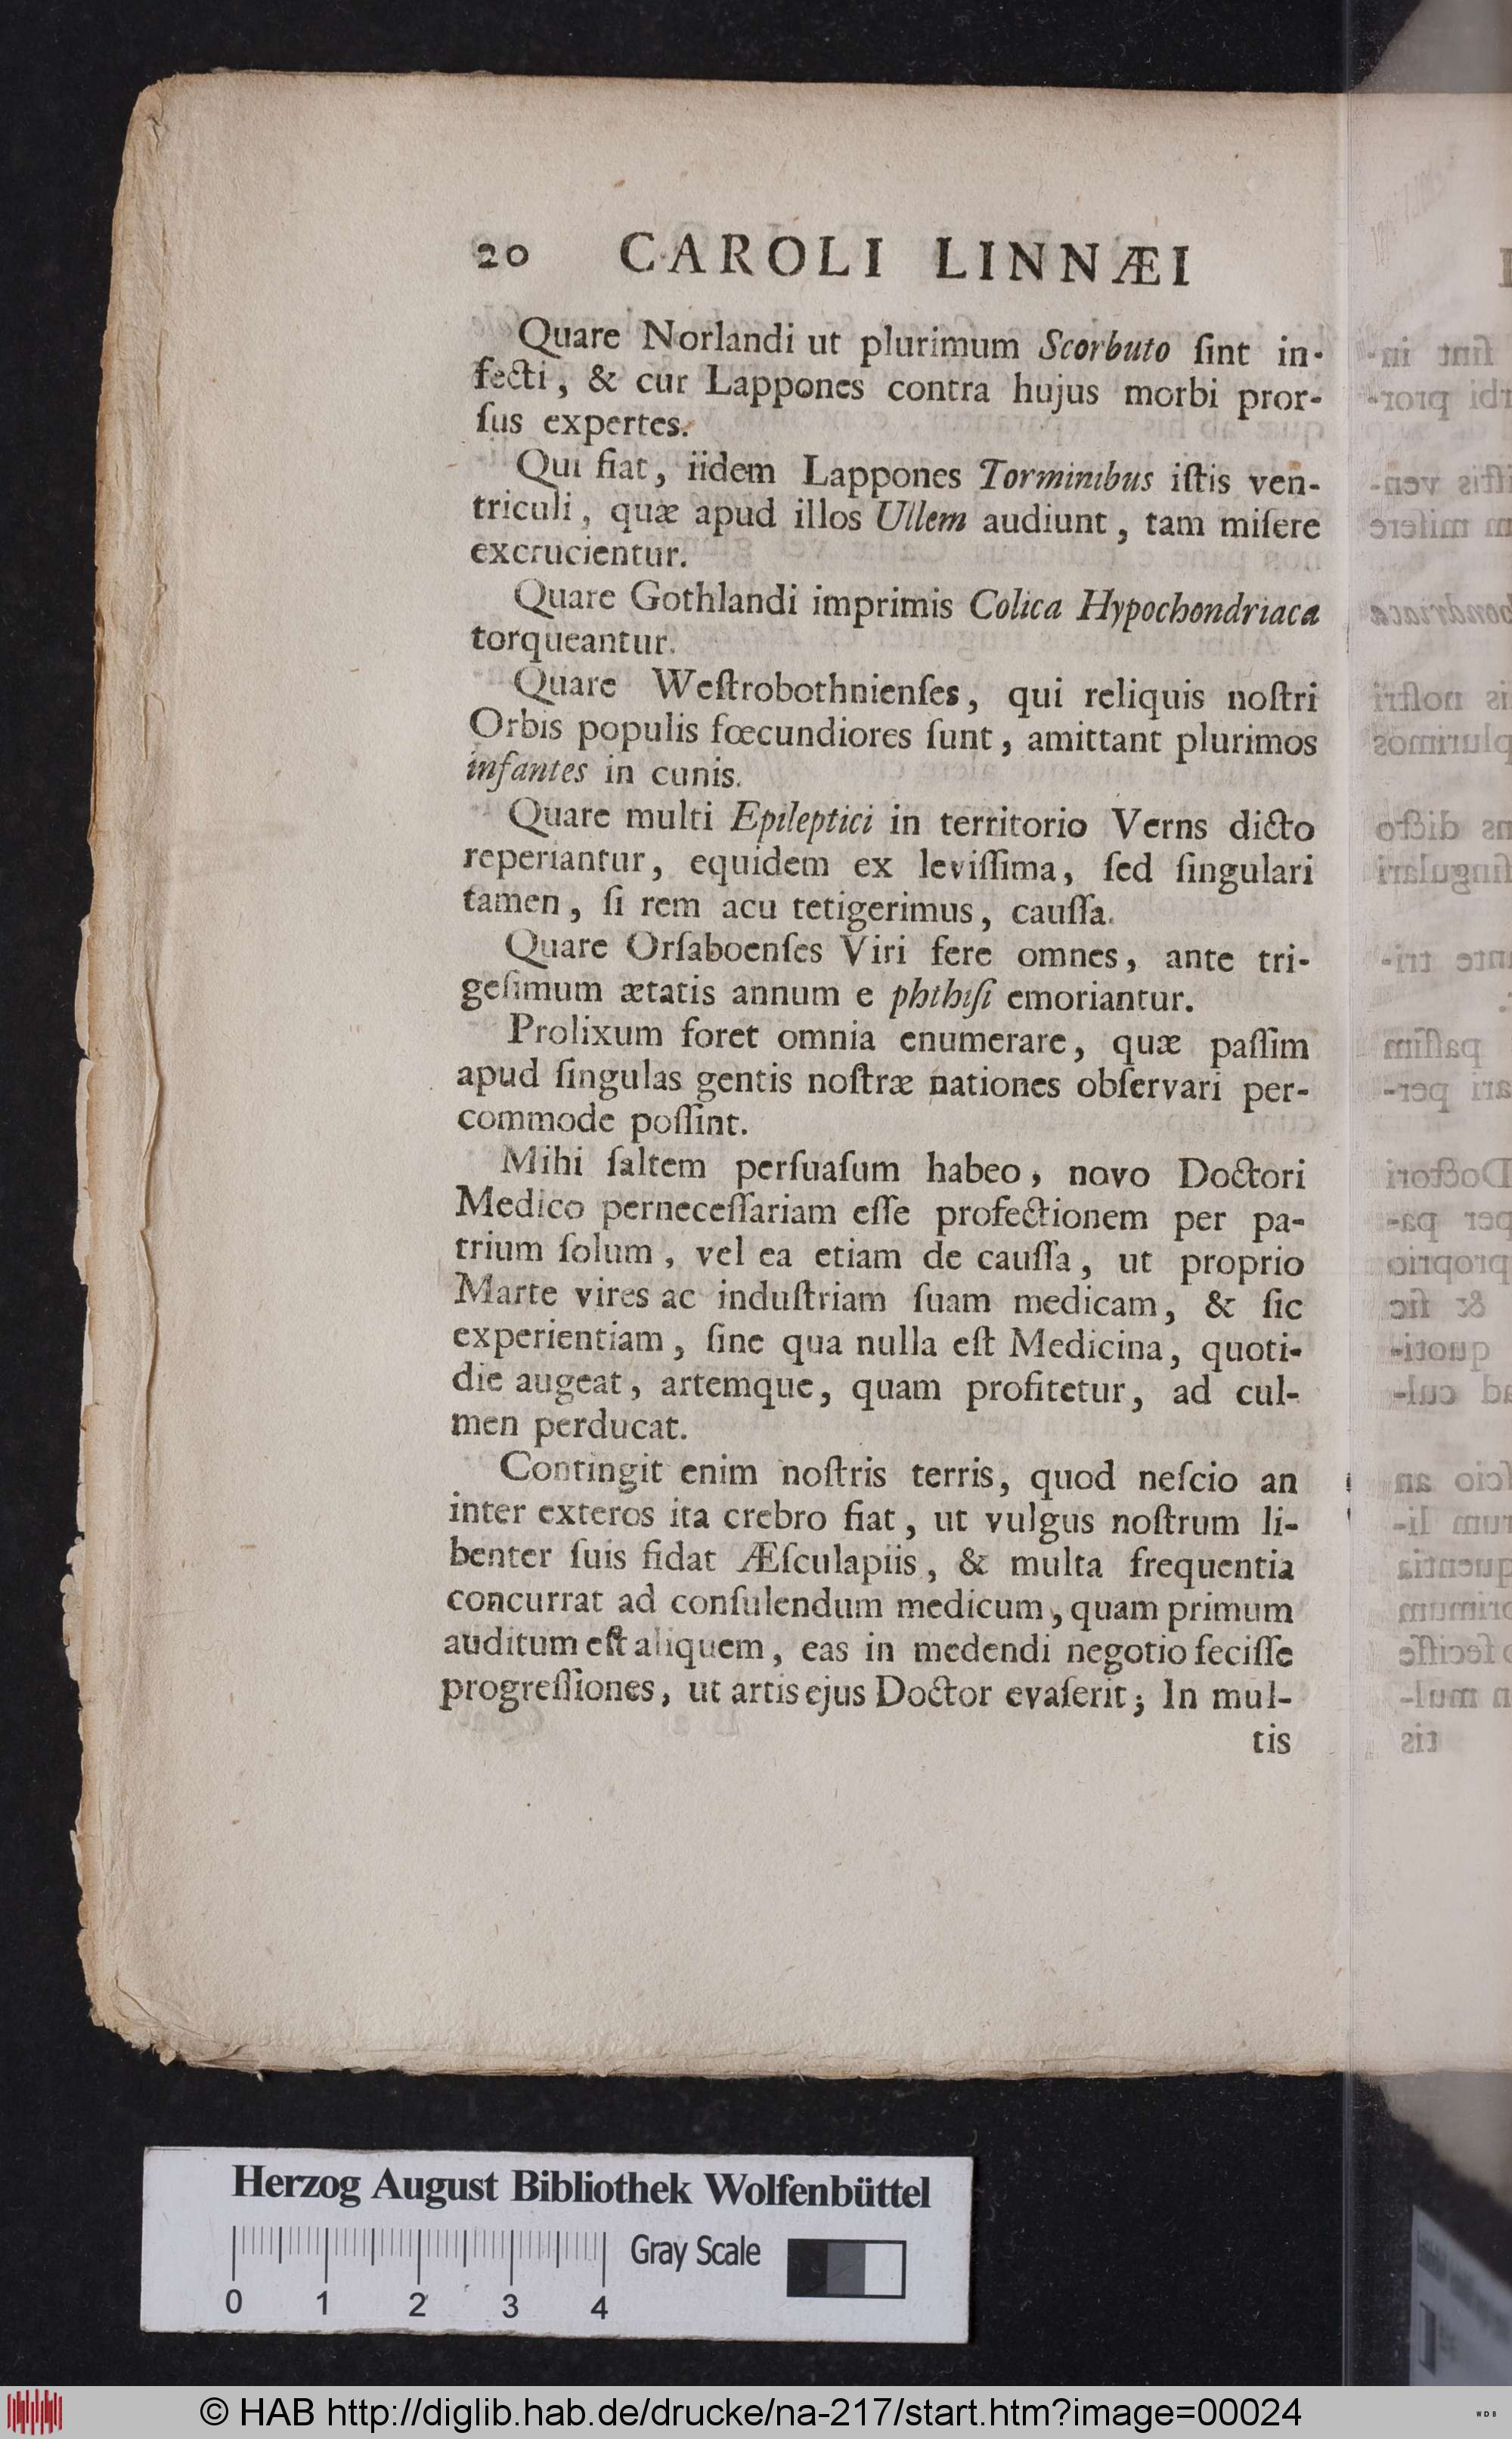 20 CAROLI LINNÆI
Quare Norlandi ut plurimum Scorbuto ſint in-
fecti, & cur Lappones contra hujus morbi pror-
ſus expertes.
Qui fiat, iidem Lappones Torminibus iſtis ven-
triculi, quæ apud illos Ullem audiunt, tam miſere
excrucientur.
Quare Gothlandi imprimis Colica Hypochondriaca
torqueantur.
Quare Weſtrobothnienſes, qui reliquis noſtri
Orbis populis fœcundiores ſunt, amittant plurimos
infantes in cunis.
Quare multi Epileptici in territorio Verns dicto
reperiantur, equidem ex leviſſima, ſed ſingulari
tamen, ſi rem acu tetigerimus, cauſſa.
Quare Orſaboenſes Viri fere omnes, ante tri-
geſimum ætatis annum e phthiſi emoriantur.
Prolixum foret omnia enumerare, quæ paſſim
apud ſingulas gentis noſtræ nationes obſervari per-
commode poſſint.
Mihi ſaltem perſuaſum habeo, novo Doctori
Medico perneceſſariam eſſe profectionem per pa-
trium ſolum, vel ea etiam de cauſſa, ut proprio
Marte vires ac induſtriam ſuam medicam, & ſic
experientiam, ſine qua nulla eſt Medicina, quoti-
die augeat, artemque, quam profitetur, ad cul-
men perducat.
Contingit enim noſtris terris, quod neſcio an
inter exteros ita crebro fiat, ut vulgus noſtrum li-
benter ſuis fidat Æſculapiis, & multa frequentia
concurrat ad conſulendum medicum, quam primum
auditum eſt aliquem, eas in medendi negotio feciſſe
progreſſiones, ut artis ejus Doctor evaſerit; In mul-
tis
Herzog August Bibliothek Wolfenbüttel
Gray Scale
0 1 2 3 4
© HAB http://diglib.hab.de/drucke/na-217/start.htm?image=00024
WDB